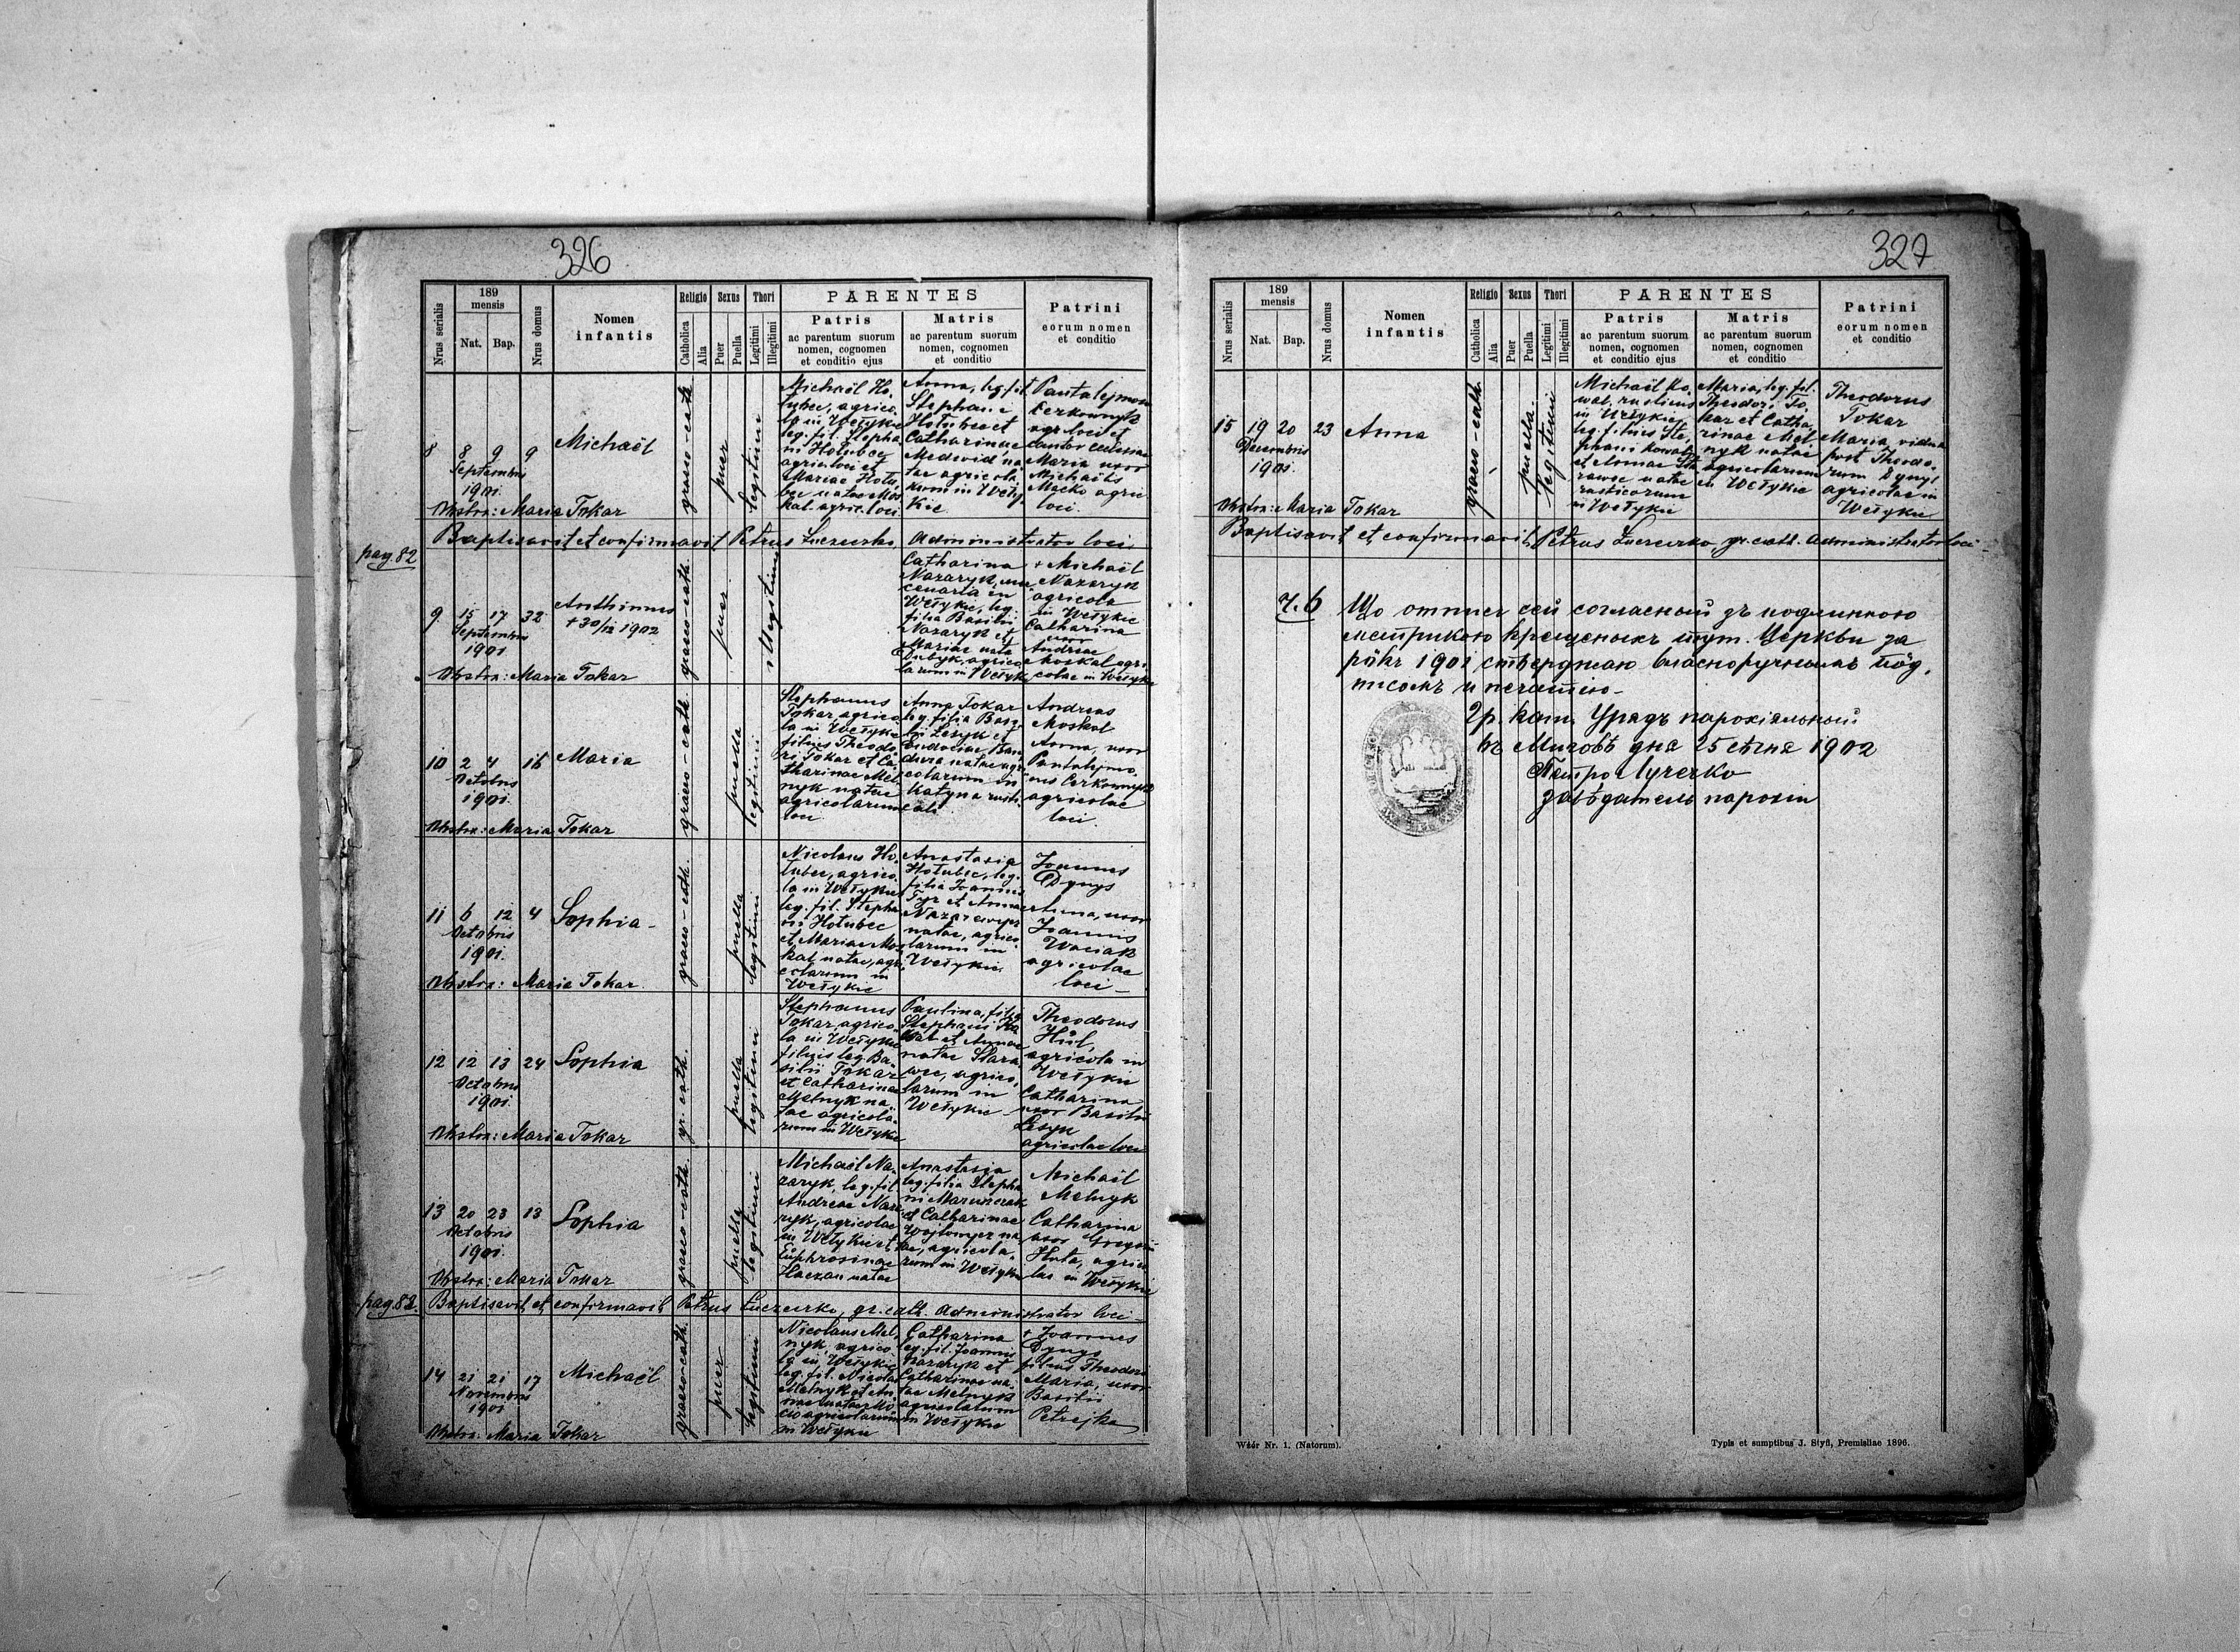 326
Nrus serialis
189
mensis
Nat.
Bap.
Nrus domus
Nomen
infantis
Religio
Catholica
Alia
Sexus
Puer
Puella
Thori
Legitimi
Illegitimi
PARENTES
Patris
ac parentum suorum
nomen, cognomen
et conditio ejus
Matris
ac parentum suorum
nomen, cognomen
et conditio
Patrini
eorum nomen
et conditio
8 8 9 9 Michaël
Septembris
1901.
Obstrx: Maria Tokar
graeco-cath.
puer
legitimi
Michaël Ho,
łubec, agrico,
la in Wełykie
leg. fil. Stepha
ni Hołubec
agric. loci et
Mariae Hołu,
bec natae Mos
kal agric. loci
Anna, leg. fil.
Stephani
Hołubec et
Catharinae
Medwid, na
tae agricola,
rum in Wely
kie
Pantalejmon
Cerkownyk
agr. loci et
cantor ecclesiae
Maria uxor
Michaëlis
Maćko agric
loci.
Baptisavit et confirmavit Petrus Łuczeczko, Administrator loci
pag. 82
9 15 17 32 Anthimus
Septembris
+ 30/12 1902
1901
Obstrx: Maria Tokar
graeco-cath.
puer
illegitimi
Catharina
Nazaryk,
in
Wełykie, leg.
filia Basilii
Nazaryk et
Mariae nata
Dubyk, agrico
larum in Wełykie
+ Michaël
Nazaryk
agricola
in Wełykie
Catharina
uxor
Andreae
Moskal agri
colae in Wełykie
10 2 4 16 Maria
Octobris
1901.
Obstrx: Maria Tokar
graeco-cath.
puella
legitimi
Stephanus
Tokar agrico
la in Wełykie
filius Theodo
ri Tokar et Ca
tharinae Mel
nyk natae
agricolarum
loci
Anna Tokar
leg. filia Basi
lii Lesyk et
Eudociae Ban
dura natae agri
colarum in
Katyna
Andreas
Moskal
Anna, uxor
Pantalejmo,
nis Cerkownyk
agricolae
loci.
11 6 12 4 Sophia
Octobris
1901.
Obstrx: Maria Tokar
graeco-cath.
puella
legitimi
Nicolaus Ho,
łubec, agrico,
la in Wełykie
leg. fil. Stepha
ni Hołubec
et Mariae Mos
kal natae, agri
colarum in
Wełykie
Anastasia
Hołubec, leg.
filia Joannis
Tyr et Annae
natae, agrico
larum in
Wełykie
Joannes
Dynys
Anna, uxor
Joannis
Waciak
agricolae
loci
12 12 13 24 Sophia
Octobris
1901.
Obstrx: Maria Tokar
gr. cath.
puella
legitimi
Stephanus
Tokar, agrico,
la in Wełykie
filius leg. Ba,
silii Tokar
et Catharinae
Melnyk na,
tae agricola,
rum in Wełykie
Paulina, filia
Stephani Ko
wal et Annae
natae Stara
wec, agrico,
larum in
Wełykie
Theodorus
Hul,
agricola in
Wełykie
Catharina
uxor Basilii
Lesyk
agricolae loci
13 20 23 13 Sophia
Octobris
1901.
Obstrx: Maria Tokar
graeco-cath.
puella
legitimi
Michaël Na,
zaryk, leg. fil
Andreae Naza
ryk, agricolae
in Wełykie et
Euphrosinae
natae
Anastasia
leg. filia Stepha
ni Marunczak
et Catharinae
na
tae, agricola,
rum in Wełykie
Michaël
Melnyk
Catharina
uxor Gregorii
Huta, agrico
lae in Wełykie
pag. 82. Baptisavit et confirmavit Petrus Łuczeczko, gr. cath. Administrator loci
14 21 21 17 Michaël
Novembris
1901
Obstrx: Maria Tokar
graeco-cath.
puer
legitimi
Nicolaus Mel,
nyk, agrico,
la in Wełykie
leg. fil. Nicolai
Melnyk et An
nae natae
agricolarum
in Wełykie
Catharina
leg. fil. Joannis
Nazaryk et
Catharinae na,
tae Melnyk
agricolarum
in Wełykie
+ Joannes
Dynys
filius Theodori
Maria, uxor
Basilii
Petrejko
327
Nrus serialis
189
mensis
Nat.
Bap.
Nrus domus
Nomen
infantis
Religio
Catholica
Alia
Sexus
Puer
Puella
Thori
Legitimi
Illegitimi
PARENTES
Patris
ac parentum suorum
nomen, cognomen
et conditio ejus
Matris
ac parentum suorum
nomen, cognomen
et conditio
Patrini
eorum nomen
et conditio
15 19 20 23 Anna
Decembris
1901.
Obstrx: Maria Tokar
graeco-cath.
puella.
legitimi
Michaël Ko,
wal, rusticus
in Wełykie
leg. filius Ste,
phani Kowal
et Annae Sta
rawec natae
rusticorum
in Wełykie
Maria, leg. fil.
Theodori To,
kar et Catha,
rinae Mel,
nyk natae
agricolarum
in Wełykie
Theodorus
Tokar
Maria, vidua
post Theodo,
rum Dynys
agricolae in
Wełykie
Baptisavit et confirmavit Petrus Łuczeczko, gr. cath. Administrator loci
Ч. 6 Що отпис сей согласный зъ подлинною
метрикою крещеныхъ тут. Церкви за
рôкъ 1901 стверджаю власноручнымъ пôд,
писомъ и печатію
Гр. кат. Урядъ парохіяльный
въ Мичовѣ дня 25 сѣчня 1902
Петро Лучечко
завѣдатель парохіи
Wzór Nr. 1. (Natorum).
Typis et sumptibus J. Styfi, Premisliae 1896.